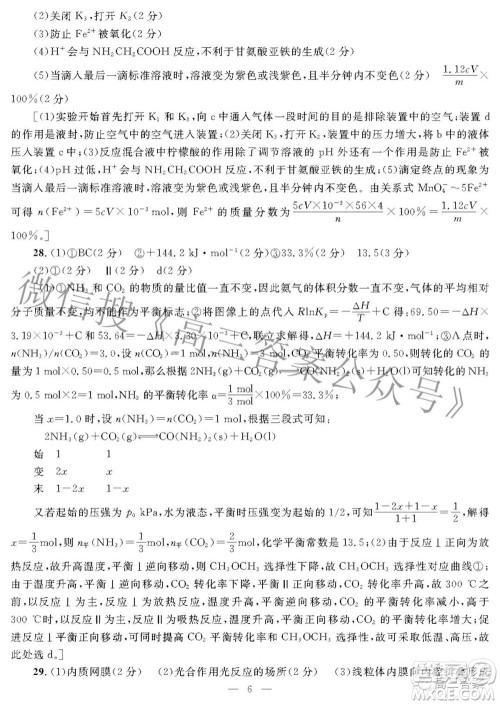 (2)关闭 K₃,打开 K₂(2 分)
(3)防止 Fe²⁺ 被氧化(2 分)
(4)H⁺ 会与 NH₂CH₂COOH 反应,不利于甘氨酸亚铁的生成(2 分)
(5)当滴入最后一滴标准溶液时,溶液变为紫色或浅紫色,且半分钟内不变色(2 分) 1.12cV/m ×
100%(2 分)
[(1)实验开始首先打开 K₁ 和 K₃,向 c 中通入气体一段时间的目的是排除装置中的空气;装置 d
的作用是液封,防止空气中的空气进入装置;(2)关闭 K₃,打开 K₂,装置中的压力增大,将 b 的液体
压入装置 c 中;(3)反应混合液中柠檬酸的作用除了调节溶液的 pH 外还可以起到防止 Fe²⁺ 被氧
化;(4)pH过低,H⁺ 会与 NH₂CH₂COOH 反应,不利于甘氨酸亚铁的生成;(5)滴定终点的现象为
当滴入最后一滴标准溶液时,溶液变为紫色或浅紫色,且半分钟内不变色。由关系式 MnO₄⁻~5Fe²⁺
可得 n(Fe²⁺)=5cV×10⁻³,则其质量分数为 5cV×10⁻³×56×4/m ×100%=1.12cV/m ×
100%。]
28. (1)①BC(2 分) ②+144.2 kJ·mol⁻¹(2分)③33.3%(2 分) 13.5(3 分)
(2)①(2 分) Ⅱ(2 分) d(2 分)
[(1)①NH₃ 和 CO₂ 的物质的量比值一直不变,因此氨气的体积分数一直不变,气体的平均相对
分子质量不变,均不能的作为平衡标志;②将图像上的点代入 RlnKₚ=−ΔH/T+C 得:69.50=−ΔH×
3.19×10⁻³+C 和 53.64=−ΔH×3.30×10⁻³+C,联立解得,ΔH=+144.2 kJ·mol⁻¹;③A 点时,
n(NH₃)/n(CO₂)=0.5,则 n(NH₃)=0.5 mol,n(CO₂)=1 mol,CO₂ 平衡转化率为 0.50,则转化的 CO₂ 的物质的
量为 1 mol×0.50=0.5 mol,那么根据 2NH₃(g)+CO₂(g)⇌CO(NH₂)₂(s)+H₂O(g),则转化的 NH₃
为 0.5 mol×2=1 mol,NH₃ 的平衡转化率 α=1/3 mol/1 mol ×100%=33.3%;
当 x=1.0 时,设 n(NH₃)=n(CO₂)=1 mol,根据三段式可知:
2NH₃(g)+CO₂(g)⇌CO(NH₂)₂(s)+H₂O(l)
始 1 1
变 2x x
末 1−2x 1−x
又若起始的压强为 p₀ kPa,水为液态,平衡时压强变为起始的 1/2,可知 1−2x+1−x/1+1=1/2,解得
x=1/3 mol,则 n平(NH₃)=1/3 mol,n平(CO₂)=2/3 mol,化学平衡常数是 13.5;(2)由于反应Ⅰ正向为放
热反应,故升高温度,平衡Ⅰ逆向移动,CH₃OCH₃ 选择性下降,所以 CH₃OCH₃ 选择性对应曲线①;
由于温度升高,平衡Ⅰ逆向移动,CO₂ 转化率降低,平衡Ⅱ正向移动,CO₂ 转化率升高,故 300 ℃之
前,以反应Ⅰ为主,反应Ⅰ为放热反应,温度升高,平衡逆向移动,CO₂ 平衡转化率降低;而 300 ℃
之后,以反应Ⅱ为主,反应Ⅱ为吸热反应,温度升高,平衡正向移动,CO₂ 平衡转化率增大;压强增大,
促进反应Ⅰ平衡正向移动,可同时提高 CO₂ 的平衡转化率和 CH₃OCH₃ 选择性,故低温、高压,故
此处选 d。]
29. (1)内质网膜(2 分) (2)光合作用光反应的场所(2 分) (3)线粒体内膜
— 6 —
微信搜《高三答案公众号》